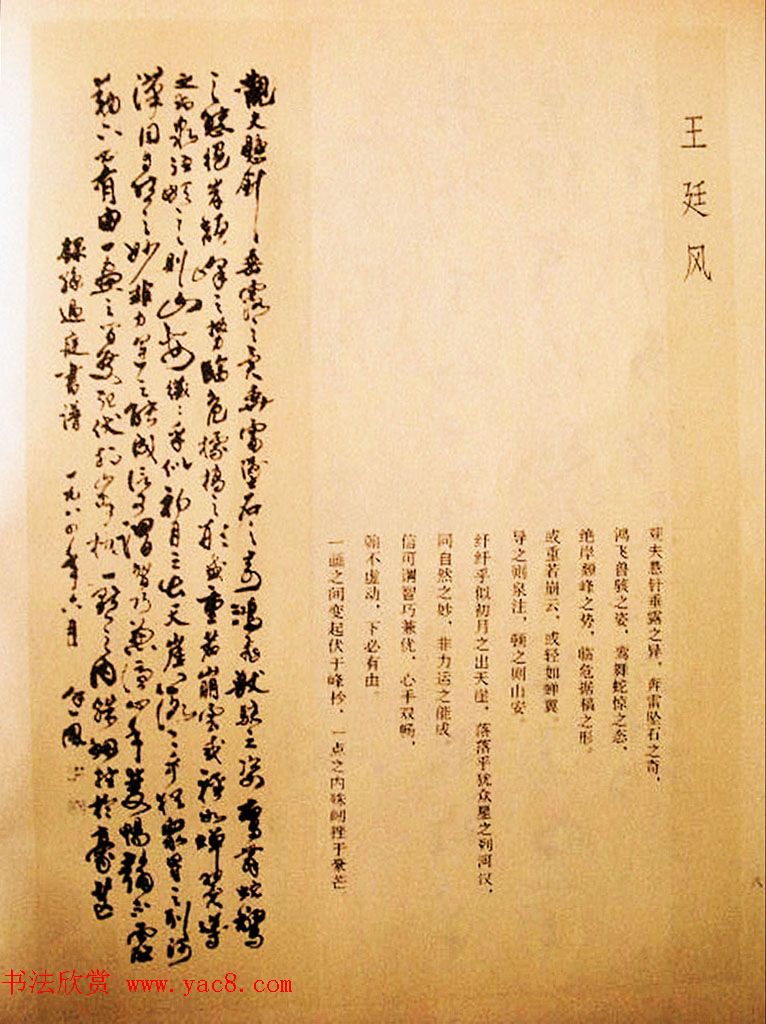 王廷风
观夫悬针垂露之异，奔雷坠石之奇，
鸿飞兽骇之姿，鸾舞蛇惊之态，
绝岸颓峰之势，临危据槁之形。
或重若崩云，或轻如蝉翼
导之则泉注，顿之则山安，
纤纤乎似初月之出天崖，落落乎犹众星之列河汉，
同自然之妙，非力运之能成。
信可谓智巧兼优，心手双畅，
翰不虚动，下必有由。
一画之间变起伏于峰杪，一点之内殊衄挫于豪芒
觀夫懸針垂露之異奔雷墜石之奇鴻飛獸駭之姿鸞舞蛇驚
之態絕岸頹峰之勢臨危據槁之形或重若崩雲或輕如蟬翼導
之則泉注頓之則山安纖〻乎似初月之出天崖落〻乎猶衆星之列河
漢同自然之妙非力運之能成信可謂智巧兼優心手雙暢翰不虛
動下必有由一畫之間變起伏於峰杪一點之内殊衄挫於豪芒
錄孫過庭書譜 一九八四年六月 廷風
八
书法欣赏 www.yac8.com